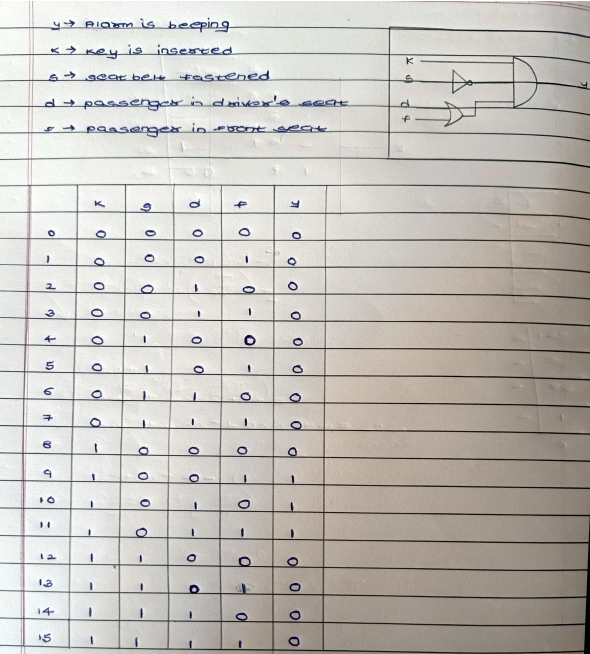 y → Alarm is beeping
k → key is inserted
s → seat belt fastened
d → passenger in driver's seat
f → passenger in front seat
k
s
d
f
y
k s d f y
0 0 0 0 0 0
1 0 0 0 1 0
2 0 0 1 0 0
3 0 0 1 1 0
4 0 1 0 0 0
5 0 1 0 1 0
6 0 1 1 0 0
7 0 1 1 1 0
8 1 0 0 0 0
9 1 0 0 1 1
10 1 0 1 0 1
11 1 0 1 1 1
12 1 1 0 0 0
13 1 1 0 1 0
14 1 1 1 0 0
15 1 1 1 1 0